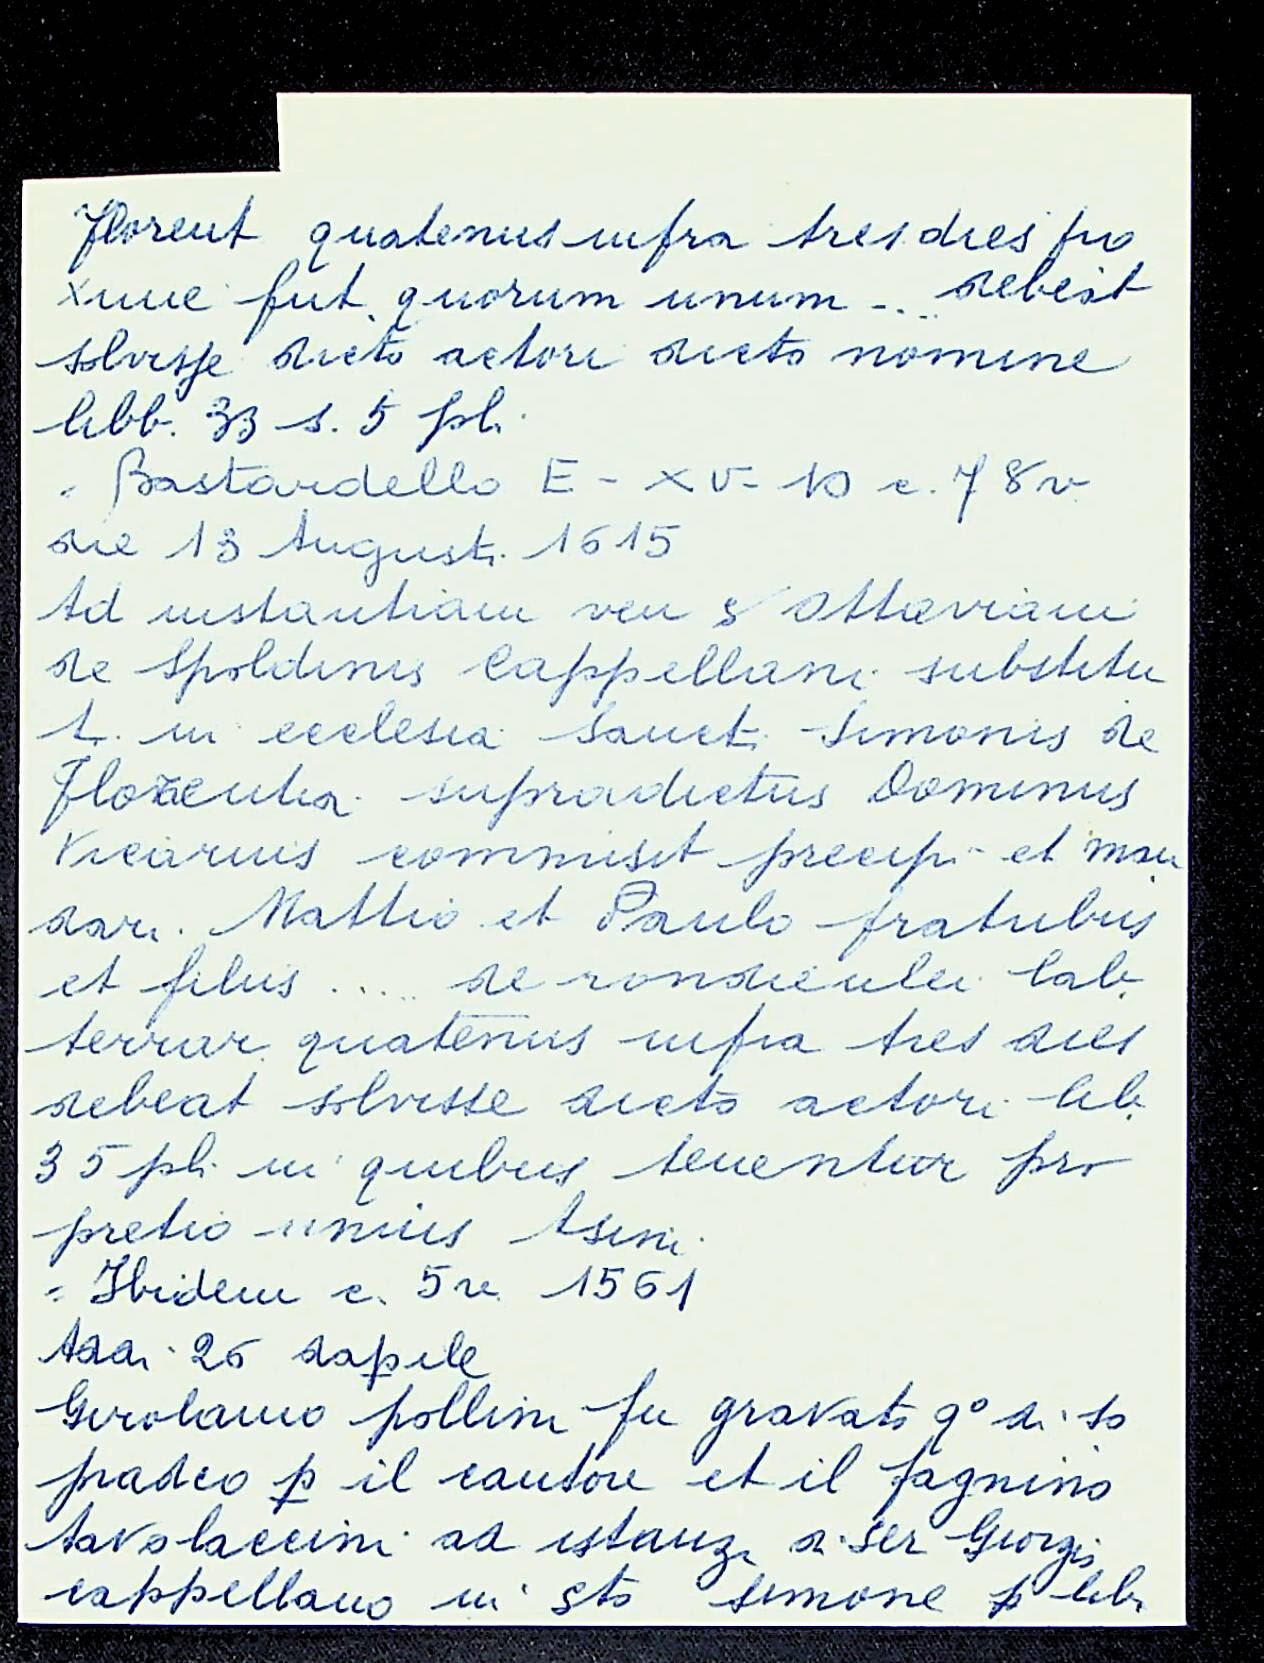 Florent quatenus infra tres dies pro
xime fut. quorum unum - .. debeat
solvisse dicto actori dicto nomine
libb. 33 s. 5 pli.
" Bastardello E - XV - 10 c. 78v
die 13 Augusti 1615
Ad instantiam ven s Ottaviani
de Spoldinis Cappellani substitu
ti in ecclesia Sancti Simonis de
Florentia supradictus Dominus
Vicarius commisit precipi et man
dari. Mattio et Paulo fratribus
et filiis ..... de lab.
terrar. quatenus infra tres dies
debeat solvisse dicto actori lib.
35 pli in quibus tenentur pro
pretio unius Asini.
" Ibidem c. 5v. 1561
Addi 26 daprile
Girolamo pollini fu gravato qo di so
pradco p il cautore et il fagnino
tavolaccini ad istanza di ser Giorgio
cappellano in sto simone p lib.